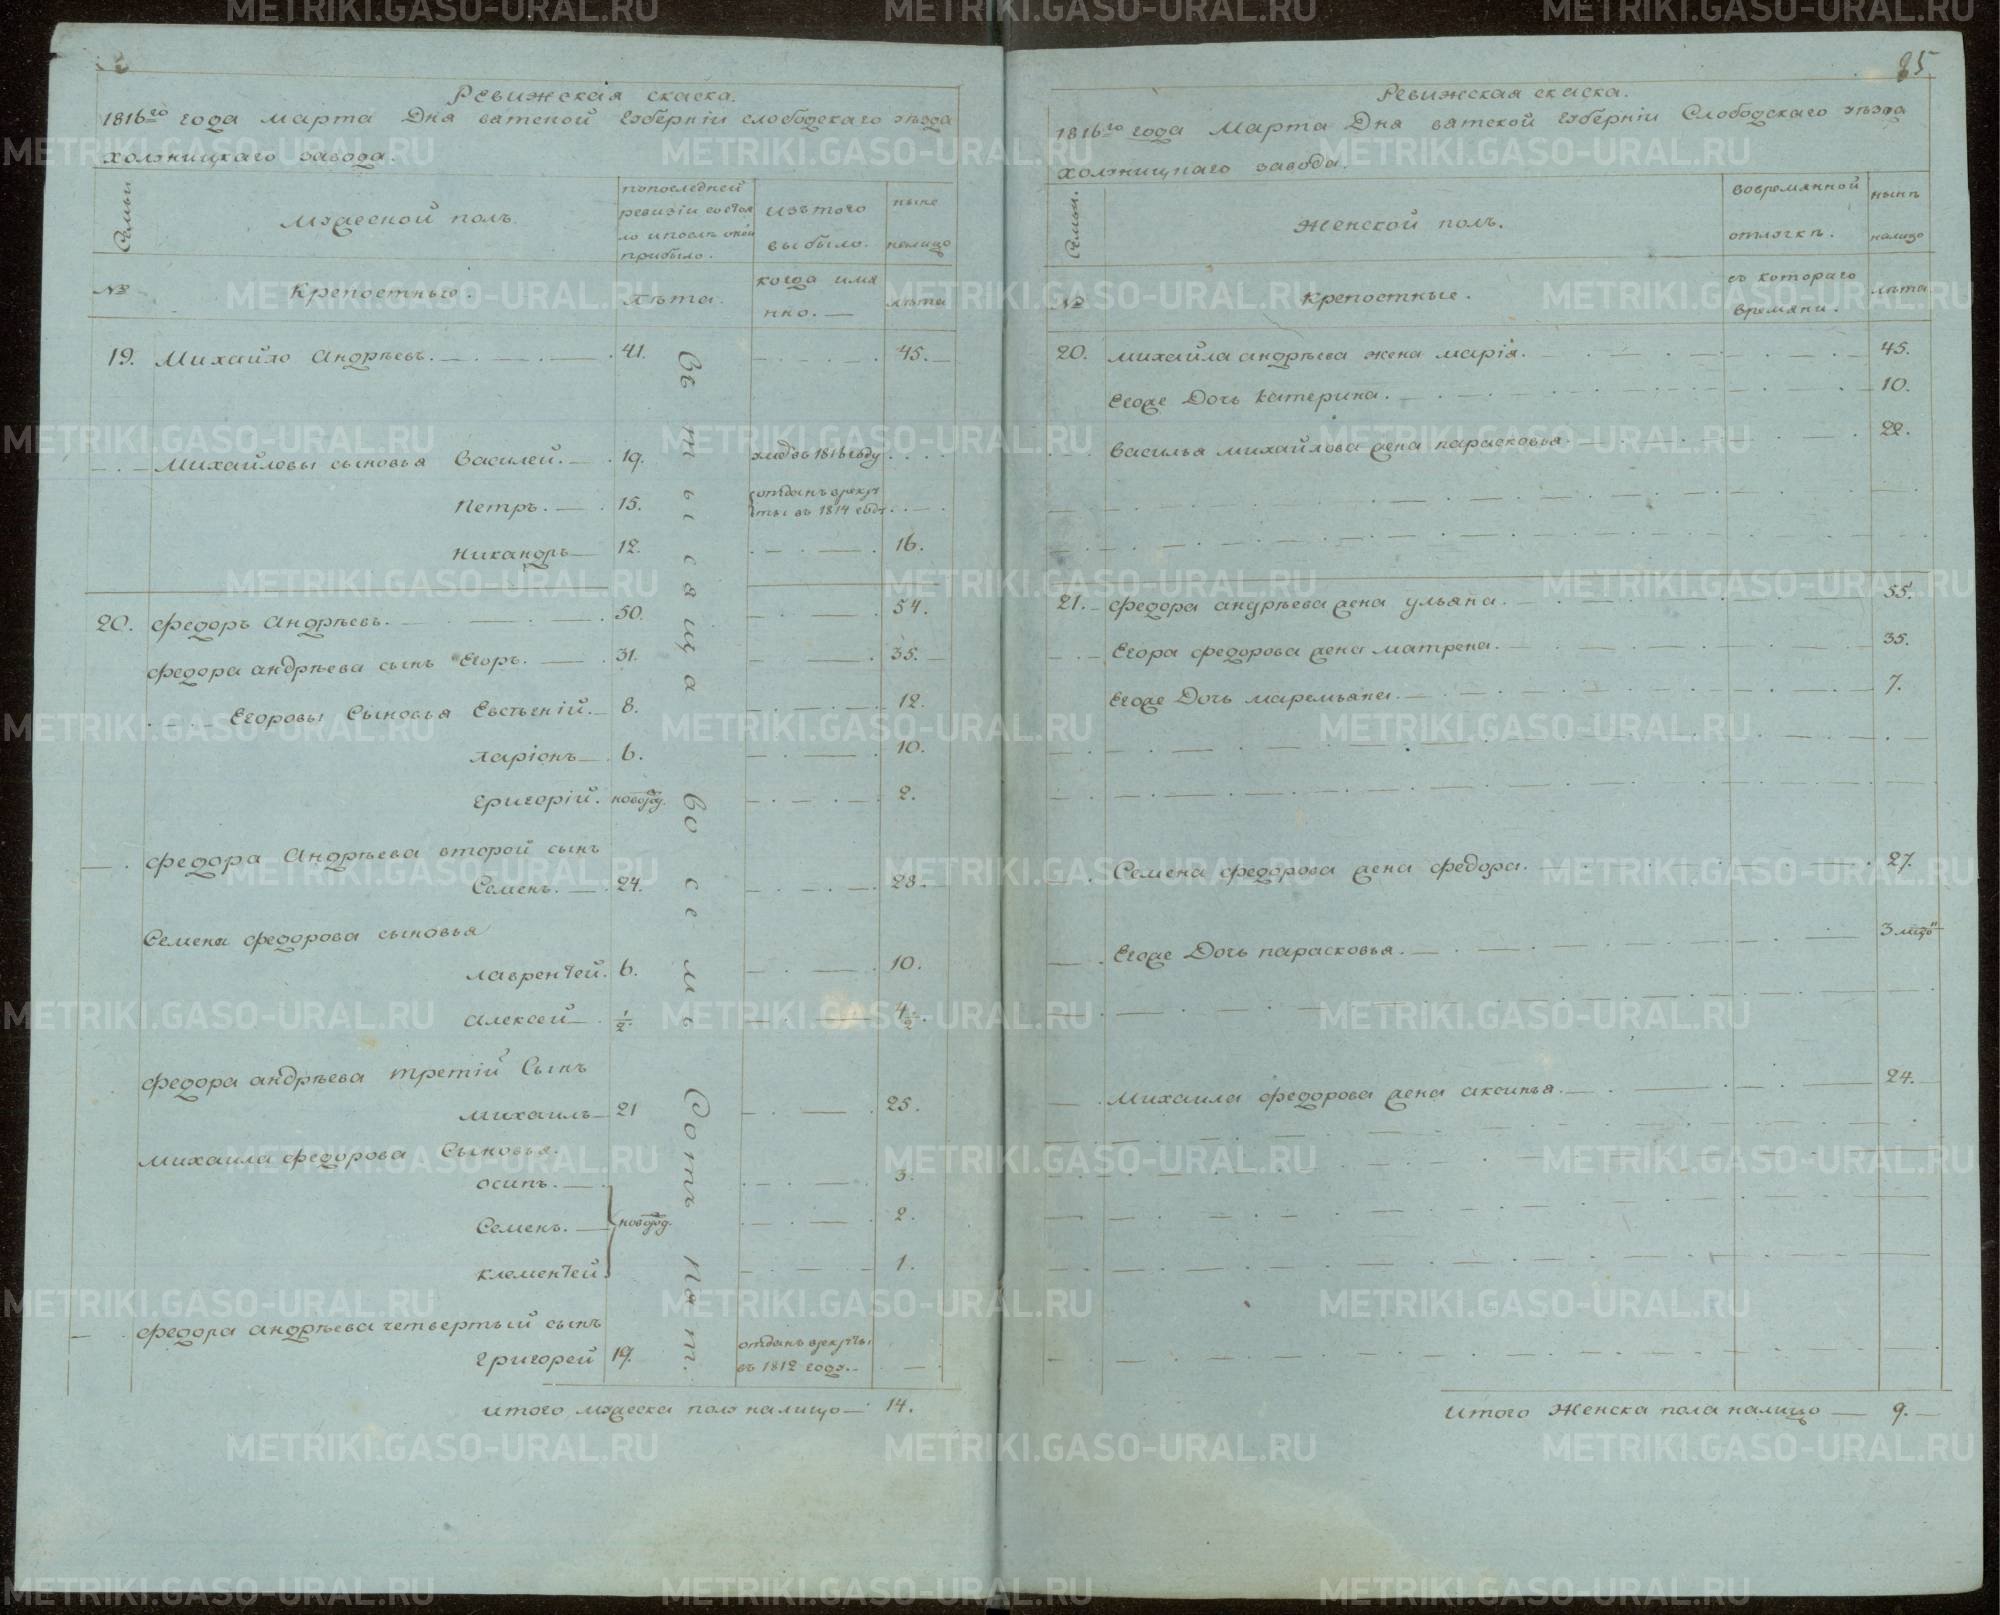 85
Ревижская скаска.
1816го года марта Дня вятской губернiи слободскаго уѣзда
холуницкаго завода.
Семьи
Мужеской полъ
попоследней ревизiи состояло ипослѣ оной прибыло.
изътого выбыло.
ныне налицо
№
Крепостные.
лѣта.
когда имянно.
лѣта
19. Михайло Андрѣевъ. 41. 45.
Михайловы сыновья Василей. 19. умре въ 1816 году
Петръ. 15. отданъ врекруты въ 1814 году
Никандръ 12. 16.
20. федоръ Андрѣевъ. 50. 54.
федора андрѣева сынъ Егоръ. 31. 35.
Егоровы Сыновья Евстегнiй. 8. 12.
ларiонъ 6. 10.
григорiй. новорожд. 2.
федора Андрѣева второй сынъ
Семенъ. 24. 28.
Семена федорова сыновья
лаврентей. 6. 10.
Алексей 1/2. 4 1/2.
федора андрѣева третiй Сынъ
михаилъ 21 25.
михаила федорова Сыновья.
осипъ. 3.
Семенъ. новорожд. 2.
клементей 1.
федора андрѣева четвертый сынъ
григорей 19. отданъ врекруты въ 1812 году.
Въ тысяща восемь Сотъ пят.
итого мужеска полу налицо 14.
Ревижская скаска.
1816го года Марта Дня вятской губернiи Слободскаго уѣзда
холуницкаго завода.
Семьи.
Женской полъ.
вовремянной отлучкѣ.
нынѣ налицо
№
крепостные.
съ котораго времяни.
лѣта
20. михайла андрѣева жена марiя. 45.
Егоже Дочь катерина. 10.
Василья михайлова жена парасковья. 22.
21. федора андрѣева жена ульяна. 55.
Егора федорова жена матрена. 35.
Егоже Дочь маремьяна. 7.
Семена федорова жена федора. 27.
Егоже Дочь парасковья. 3
Михаила федорова жена аксинья. 24.
итого Женска пола налицо 9.
METRIKI.GASO-URAL.RU